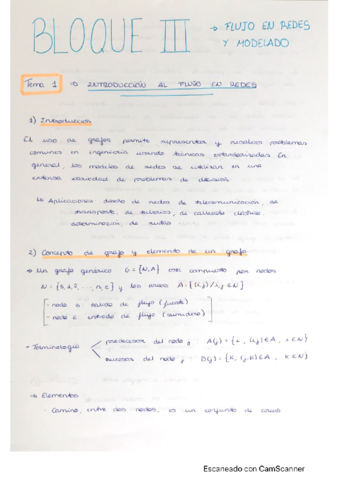 BLOQUE III → FLUJO EN REDES
Y MODELADO
Tema 1 → INTRODUCCIÓN AL FLUJO EN REDES
1) Introducción
El uso de grafos permite representar y resolver problemas
comunes en ingeniería usando técnicas estandarizadas. En
general, los modelos de redes se utilizan en una
extensa variedad de problemas de decisión.
↳ Aplicaciones: diseño de redes de telecomunicación, de
transporte, de tuberías, de cableado eléctrico,
determinación de rutas
2) Concepto de grafo y elementos de un grafo
→ Un grafo genérico G = {N, A} está compuesto por nodos
N = {s, 1, 2, ..., n, t} y los arcos A: {(i,j) / i,j ∈ N}
- nodo s: salida de flujo (fuente)
- nodo t: entrada de flujo (sumidero)
· Terminología
predecesores del nodo j : A(j) = {i, (i,j) ∈ A, i ∈ N}
sucesores del nodo j : D(j) = {k, (j,k) ∈ A, k ∈ N}
→ Elementos
- Camino, entre dos nodos, es un conjunto de arcos
Escaneado con CamScanner